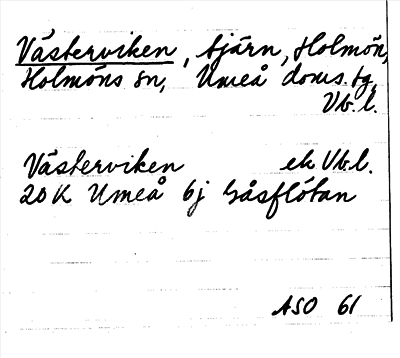 Västerviken, tjärn, Holmön,
Holmöns sn, Umeå doms.tg,
Vb.l.
Västerviken ek Vb.l.
20 K Umeå 6j Gåsflötan
ASO 61